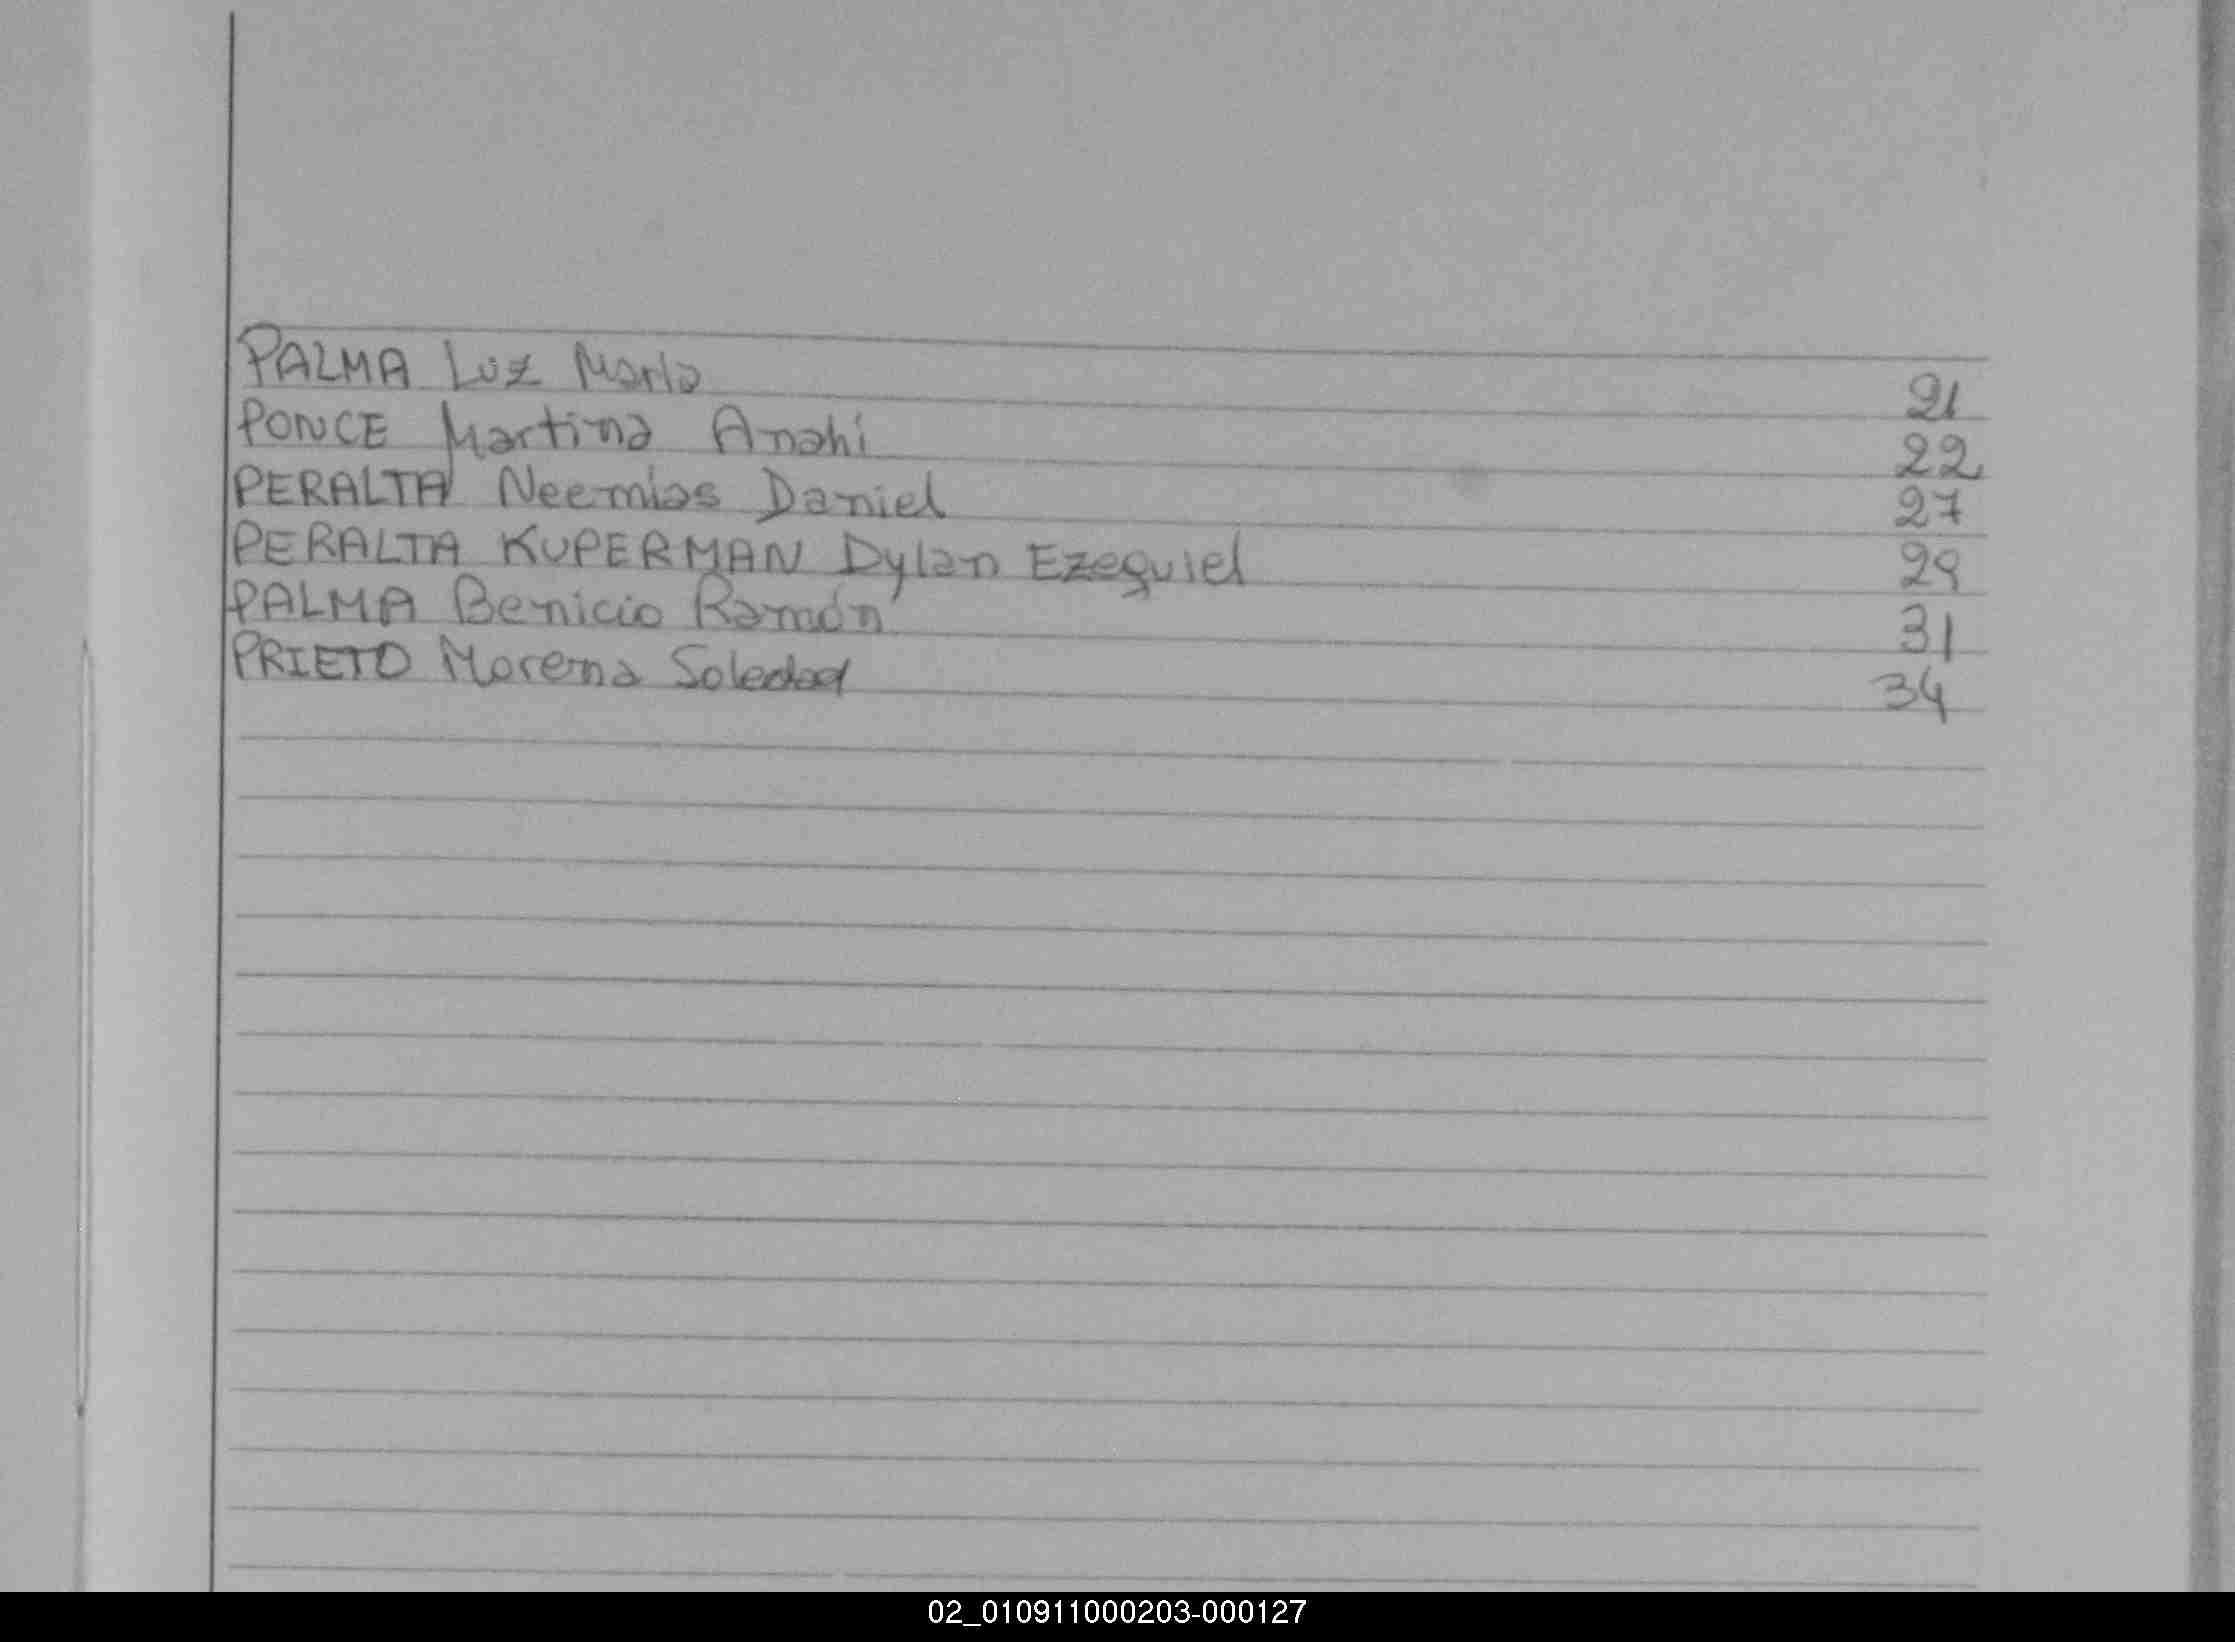 PALMA Luz María 21
PONCE Martina Anahi 22
PERALTA Neemias Daniel 27
PERALTA KUPERMAN Dylan Ezequiel 29
PALMA Benicio Ramón 31
PRIETO Morena Soledad 34
02_010911000203-000127